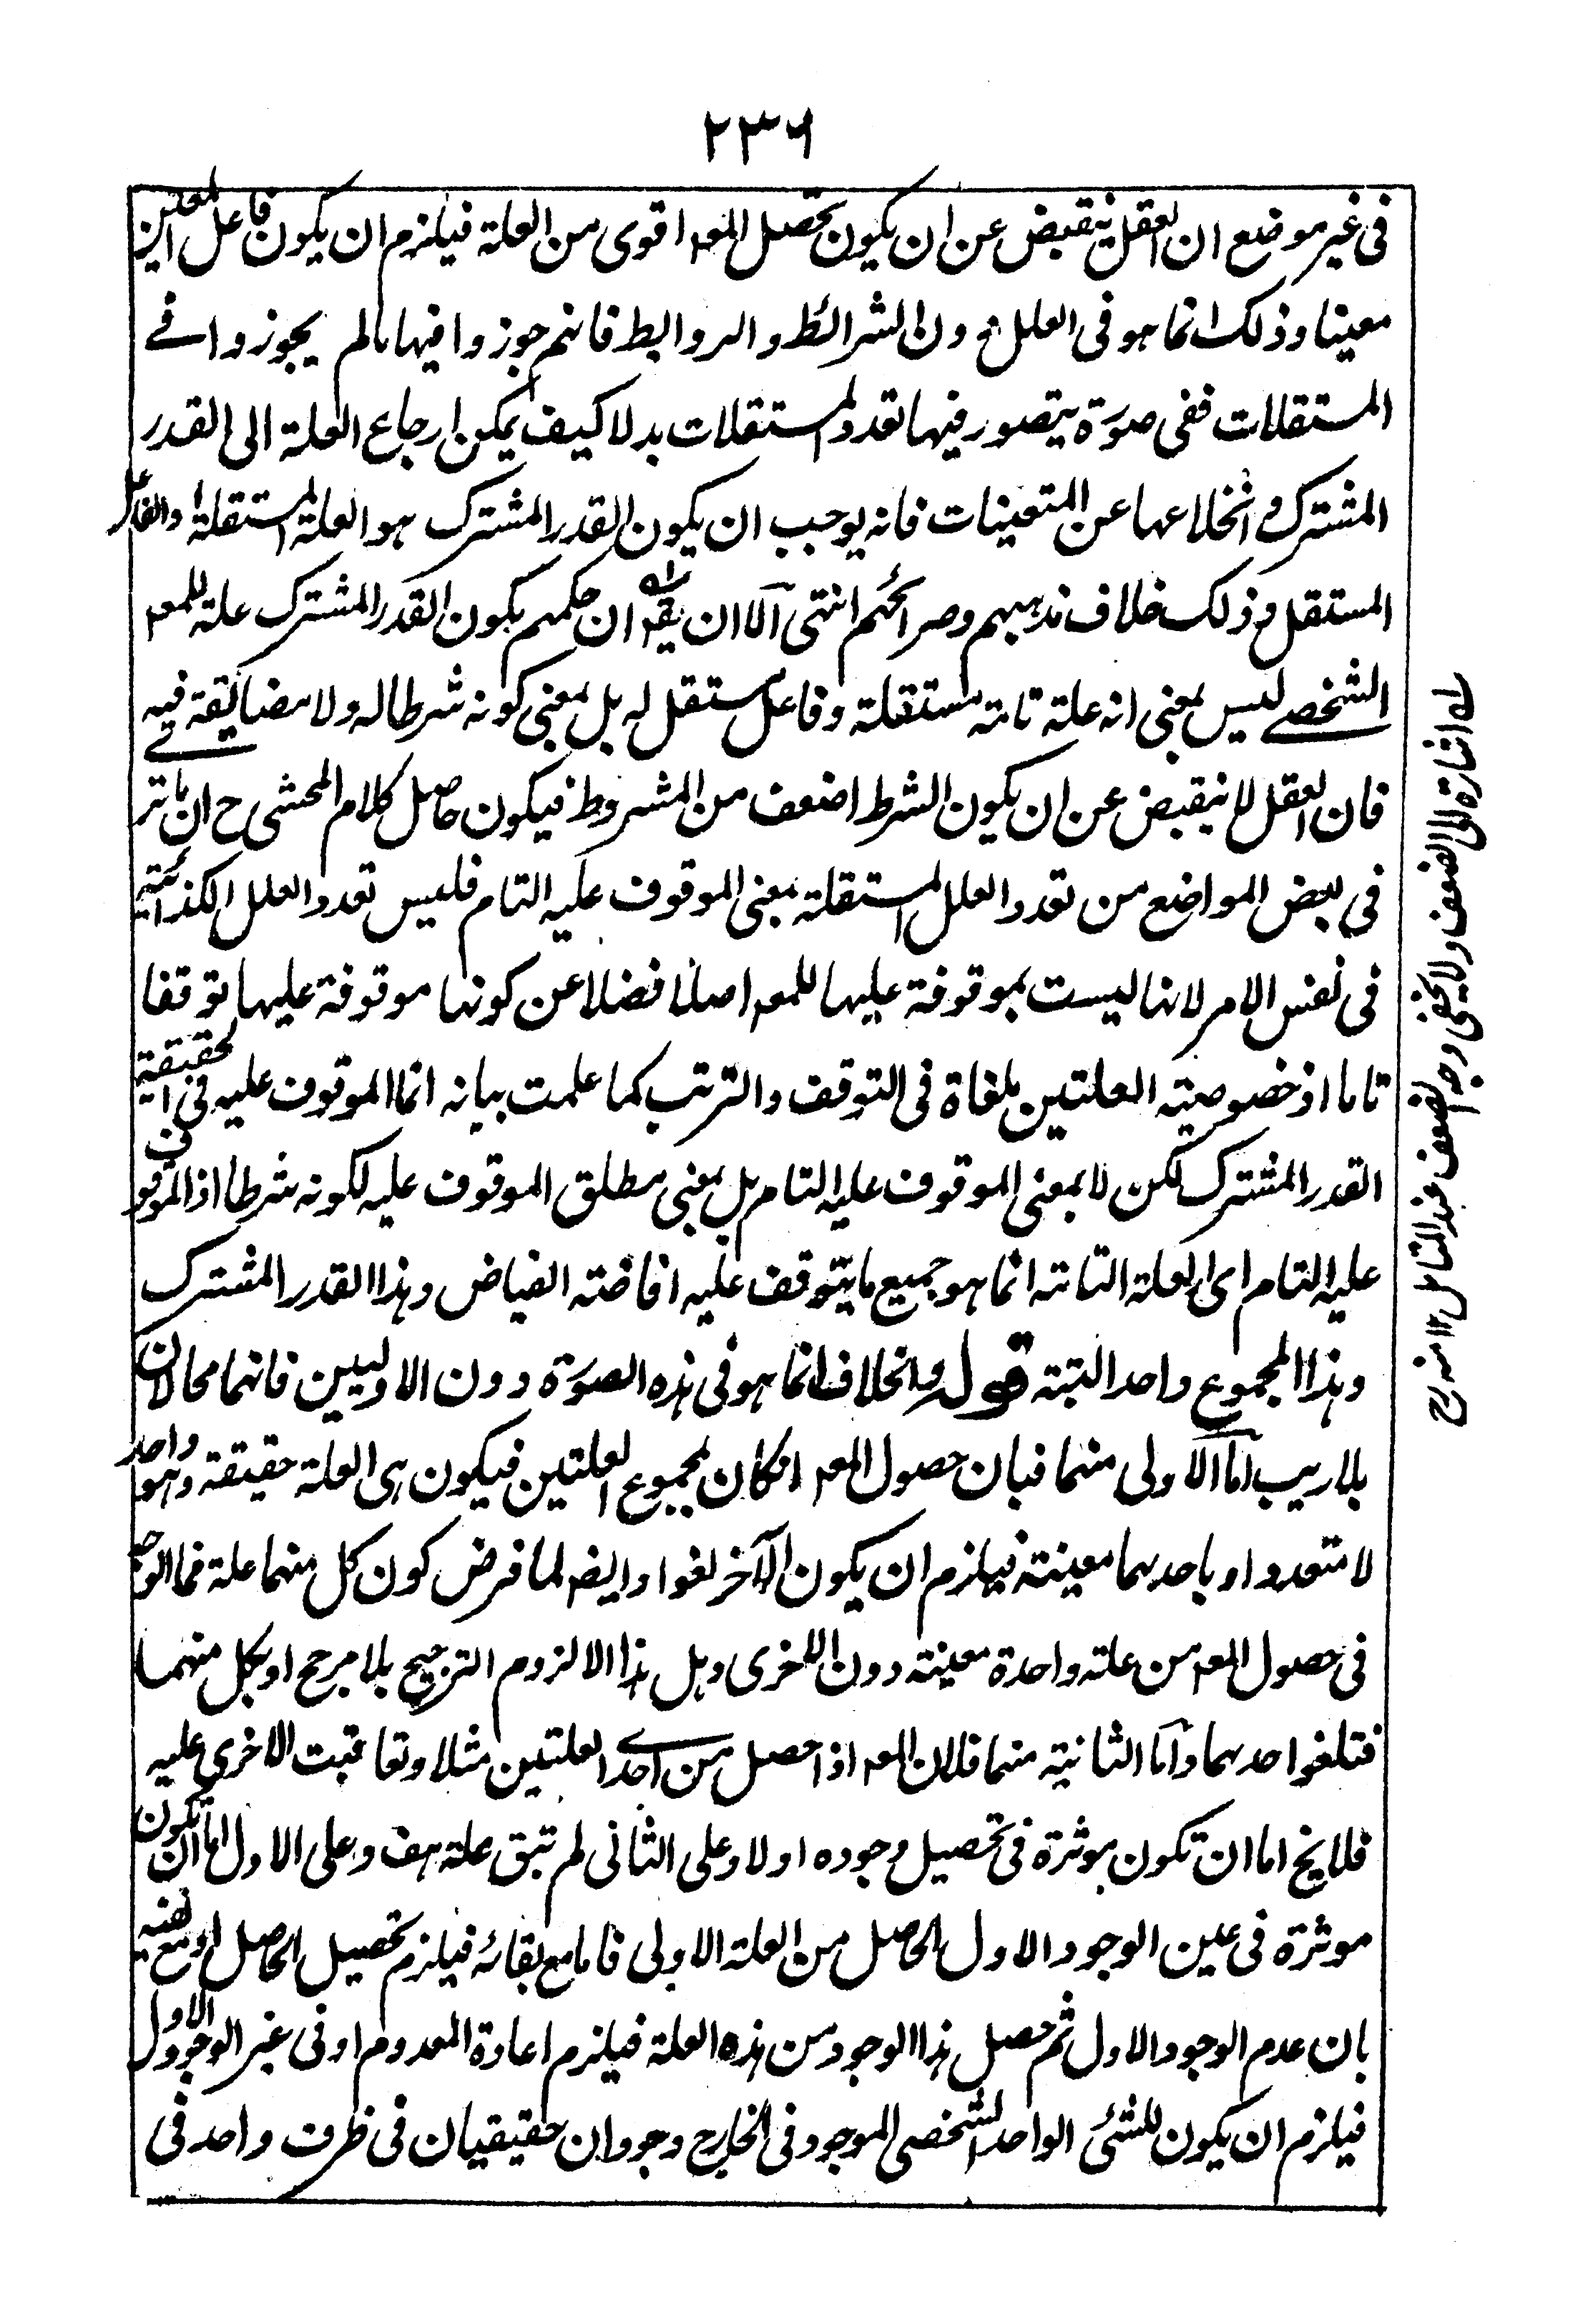 ٢٣٦
فى غير موضع ان العقل ينقبض عن ان يكون محصل المعـ اقوى من العلة فيلزم ان يكون فاعل المعين
معينا وذلك انما هو فى العلل دون الشرائط والروابط فانهم جوزوا فيها مالم يجوزوا فے
المستقلات ففى صورة يتصور فيها تعدد المستقلات بدلا كيف يمكن ارجاع العلة الى القدر
المشترك و انخلاعها عن المتعينات فانه يوجب ان يكون القدر المشترك هو العلة المستقلة والفاعل
المستقل و ذلك خلاف مذهبهم وصرائحهم انتهى الا ان يقـ ان حكمهم بكون القدر المشترك علة للمعـ
الشخصے ليس بمعنى انه علة تامة مستقلة وفاعل مستقل له بل بمعنى كونه شرطا له ولا مضايقة فيه
فان العقل لا ينقبض عن ان يكون الشرط اضعف من المشروط فيكون حاصل كلام المحشى ح ان ما تر
فى بعض المواضع من تعدد العلل المستقلة بمعنى الموقوف عليه التام فليس تعدد العلل الكذائية
فى نفس الامر لانها ليست بموقوفة عليها للمعـ اصلا فضلا عن كونها موقوفة عليها توقفا
تاما اذ خصوصية العلتين ملغاة فى التوقف والترتب كما علمت بيانه انما الموقوف عليه فى الحقيقة
القدر المشترك لكن لا بمعنى الموقوف عليه التام بل بمعنى مطلق الموقوف عليه لكونه شرطا اذ الموقوف
عليه التام اى العلة التامة انما هو جميع ما يتوقف عليه افاضة الفياض وهذا القدر المشترك
وهذا المجموع واحد البتة قوله والخلاف انما هو فى هذه الصورة دون الاوليين فانهما محالان
بلا ريب اما الاولى منهما فبان حصول المعـ اكان بمجموع العلتين فيكون هى العلة حقيقة وهو واحد
لا متعدد او باحدهما معينة فيلزم ان يكون الآخر لغوا وايضـ لما فرض كون كل منهما علة فما الوجه
فى حصول المعـ من علة واحدة معينة دون الاخرى وهل هذا الا لزوم الترجيح بلا مرجح او بكل منهما
فتلغو احدهما واما الثانية منهما فلان المعـ اذا حصل من احدے العلتين مثلا وتعاقبت الاخرى عليه
فلا يخ اما ان تكون موثرة فى تحصيل وجوده اولا وعلى الثانى لم تبق علة هف وعلى الاول اما ان تكون
موثرة فى عين الوجود الاول الحاصل من العلة الاولى فاما مع بقائه فيلزم تحصيل الحاصل او مع نفيه
بان عدم الوجود الاول ثم حصل هذا الوجود من هذه العلة فيلزم اعادة المعدوم او فى غير الوجود الاول
فيلزم ان يكون للشئ الواحد الشخصى الموجود فى الخارج وجودان حقيقيان فى ظرف واحد فى
لـه اشارة الى الضعف ولا يخفى وجه الضعف عند التامل ١٢ منه رح